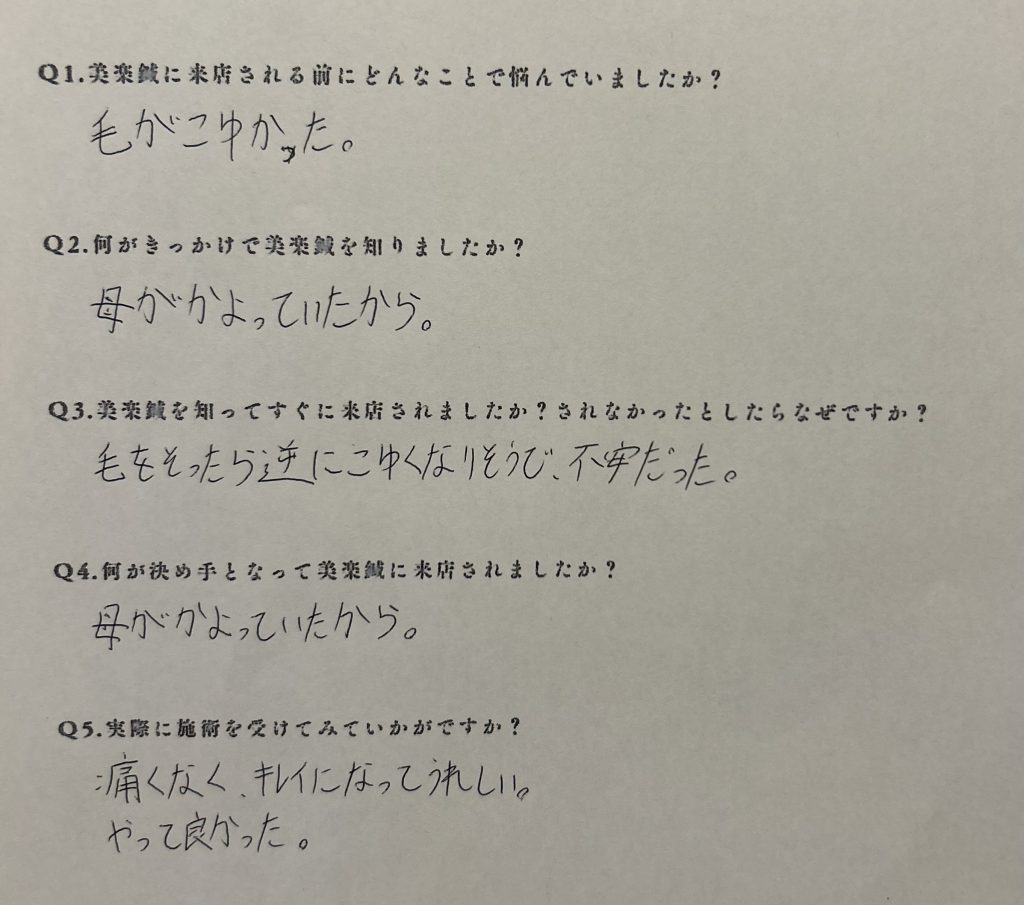 Q1.美楽鍼に来店される前にどんなことで悩んでいましたか?
毛がこゆかった。
Q2.何がきっかけで美楽鍼を知りましたか?
母がかよっていたから。
Q3.美楽鍼を知ってすぐに来店されましたか?されなかったとしたらなぜですか?
毛をそったら逆にこゆくなりそうで、不安だった。
Q4.何が決め手となって美楽鍼に来店されましたか?
母がかよっていたから。
Q5.実際に施術を受けてみていかがですか?
痛くなく、キレイになってうれしい。
やって良かった。